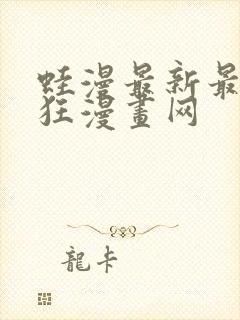 蛙漫最新最
狂漫畫网
龍卡